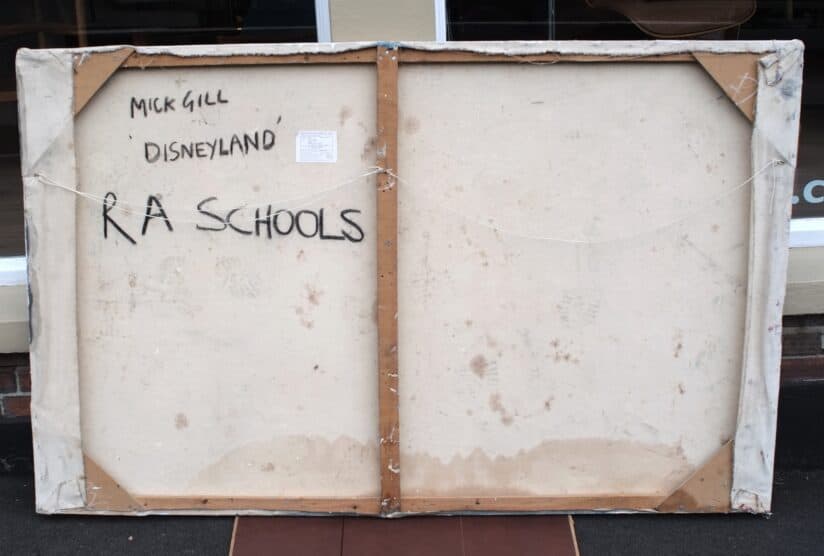 MICK GILL
'DISNEYLAND'
R A SCHOOLS
.c